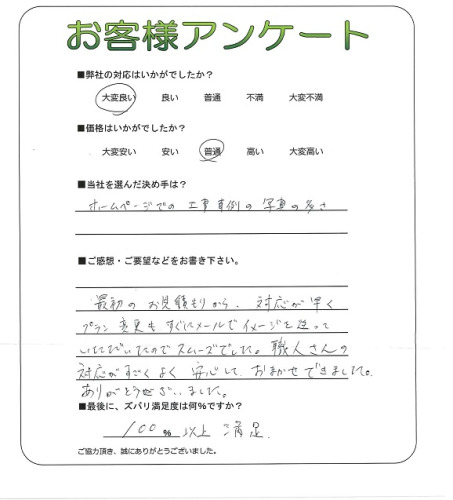 お客様アンケート
■弊社の対応はいかがでしたか？
大変良い 良い 普通 不満 大変不満
■価格はいかがでしたか？
大変安い 安い 普通 高い 大変高い
■当社を選んだ決め手は？
ホームページでの 工事事例の 写真の多さ
■ご感想・ご要望などをお書き下さい。
最初の お見積もりから、対応が早く
プラン 変更も すぐにメールで イメージを 送って
いただいたので スムーズでした。職人さんの
対応がすごく よく 安心して、おまかせできました。
ありがとうございました。
■最後に、ズバリ満足度は何％ですか？
100 % 以上 満足.
ご協力頂き、誠にありがとうございました。